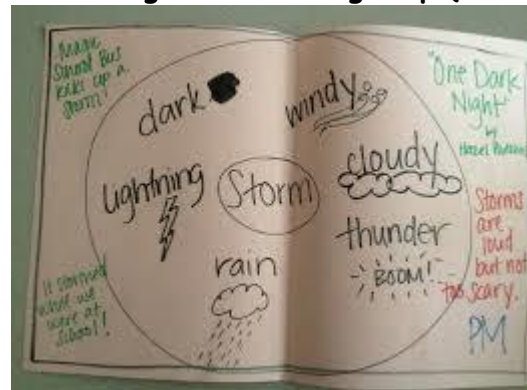 Magic
School Bus
kicks up a
storm"
dark
windy
"One Dark
Night"
by
Hazel
lightning
Storm
cloudy
thunder
BOOM!
rain
Storms
are
loud
but not
too scary.
It stormed
while we
were at
school!
PM